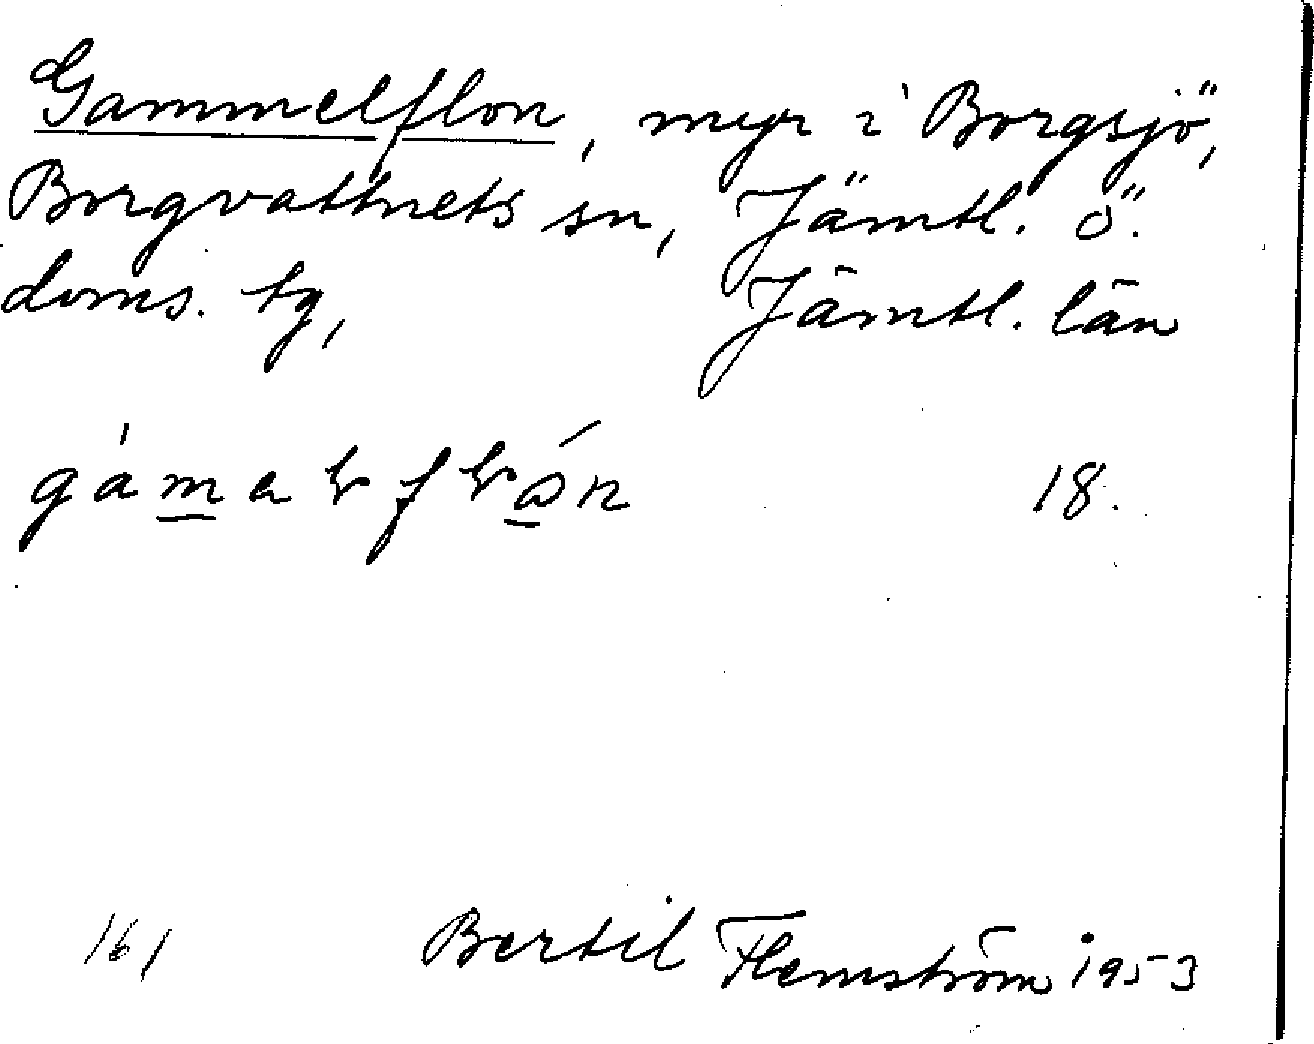 Gammelflon, myr i Borgsjö,
Borgvattnets sn, Jämtl. ö.
doms. tg, Jämtl. län
18.
161 Bertil Flemström 1953